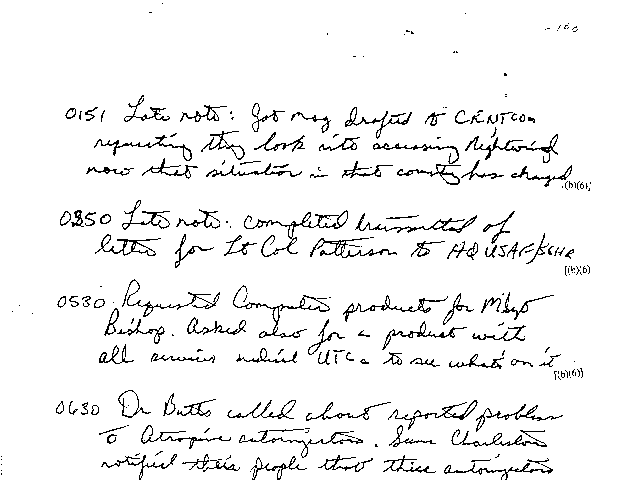 - 100
0151 Late note: Got msg drafted to CENTCOM
requesting they look into accessing Nightwind
now that situation in that country has changed.
(b)(6)
0250 Late note: completed transmittal of
letter for Lt Col Patterson to HQ USAF/SGHR
(b)(6)
0530 Requested Computer products for MSgt
Bishop. Asked also for a product with
all services medical UTCs to see what's on it
(b)(6)
0630 Dr Butts called about reported problem
to Atropine autoinjectors. Some Charleston
notified their people that these autoinjectors